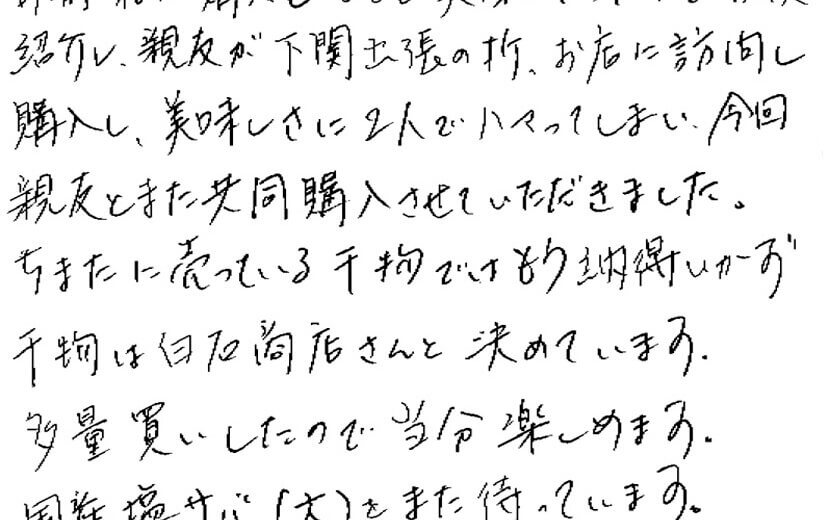 紹介し、親友が下関出張の折、お店に訪問し
購入し、美味しさに2人でハマってしまい、今回
親友とまた共同購入させていただきました。
ちまたに売っている干物ではもう納得いかず
干物は白石商店さんと決めています。
多量買いしたので当分楽しめます。
国産塩サバ(大)をまた待っています。